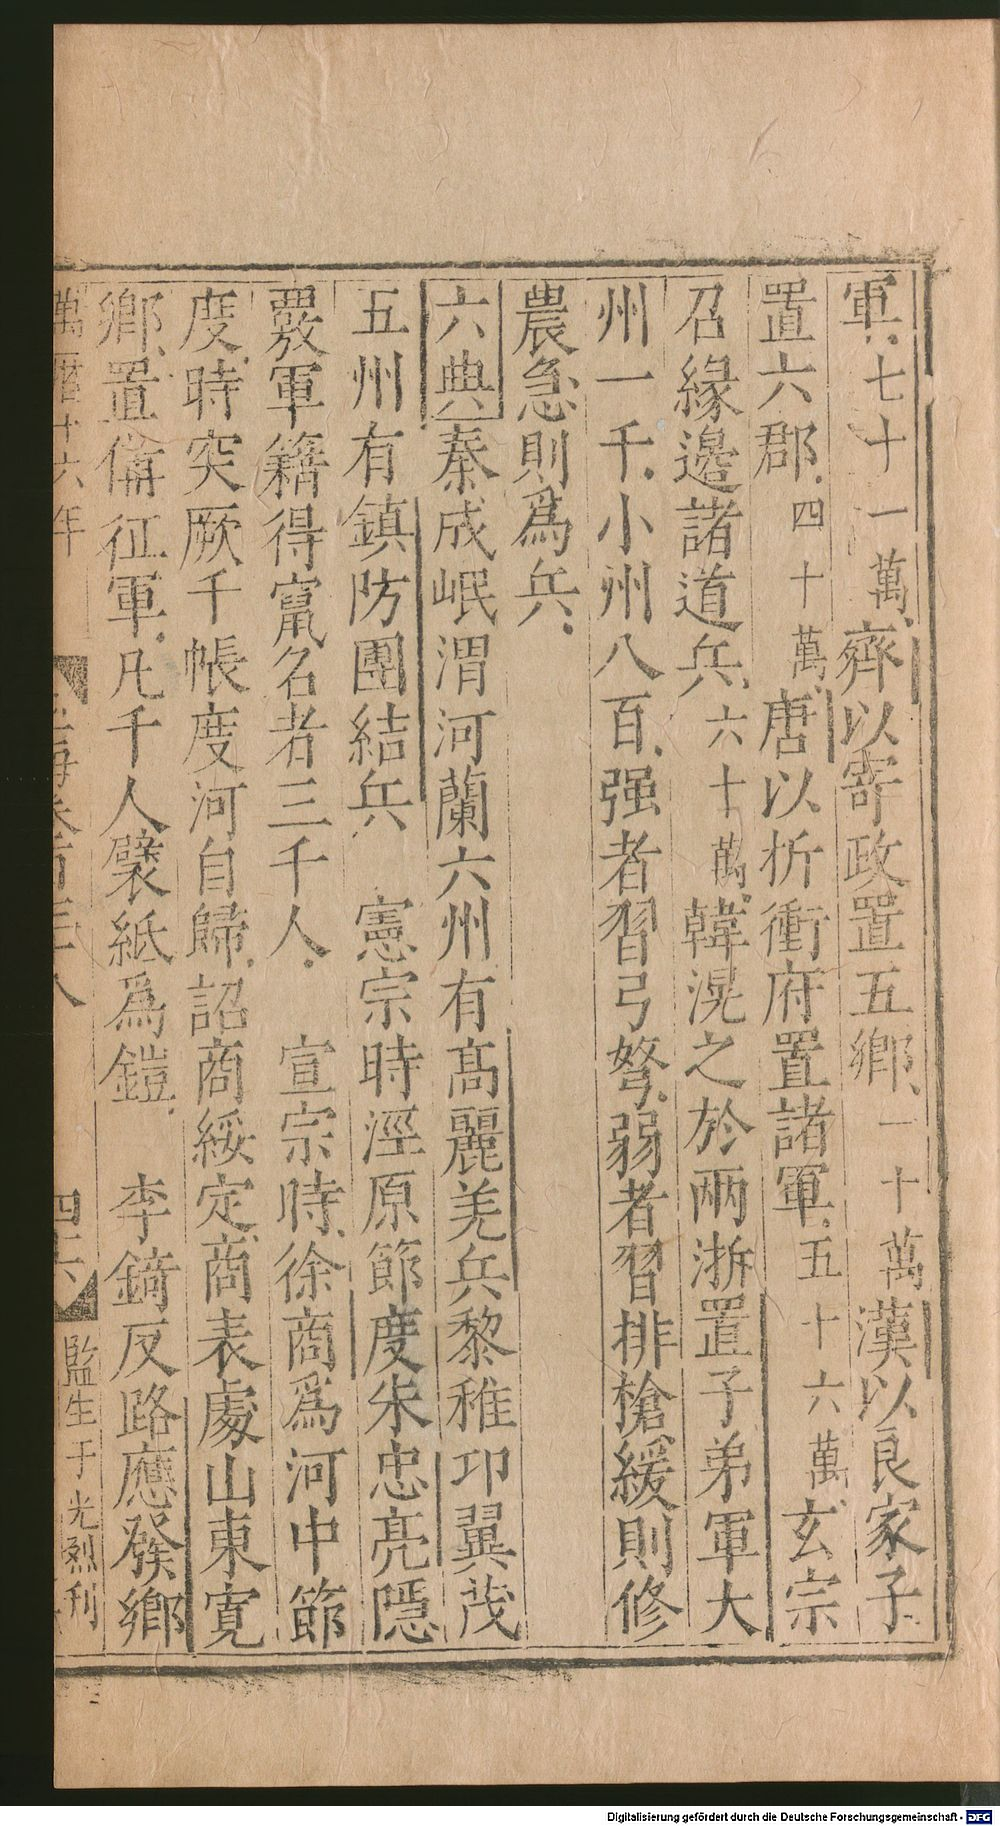 軍七十一萬齊以寄政置五鄉一十萬漢以良家子
置六郡四十萬唐以折衝府置諸軍五十六萬玄宗
召緣邊諸道兵六十萬韓滉之於兩浙置子弟軍大
州一千小州八百强者習弓弩弱者習排槍緩則修
農急則爲兵
六典秦成岷渭河蘭六州有髙麗羌兵黎稚邛翼茂
五州有鎮防團結兵 憲宗時涇原節度朱忠亮隱
覈軍籍得竄名者三千人 宣宗時徐商爲河中節
度時突厥千帳度河自歸詔商綏定商表處山東寛
鄉置備征軍凡千人襞紙爲鎧 李錡反路應發鄉
萬曆十六年 玉海卷百三八 四六 監生于光烈刊
Digitalisierung gefördert durch die Deutsche Forschungsgemeinschaft - DFG